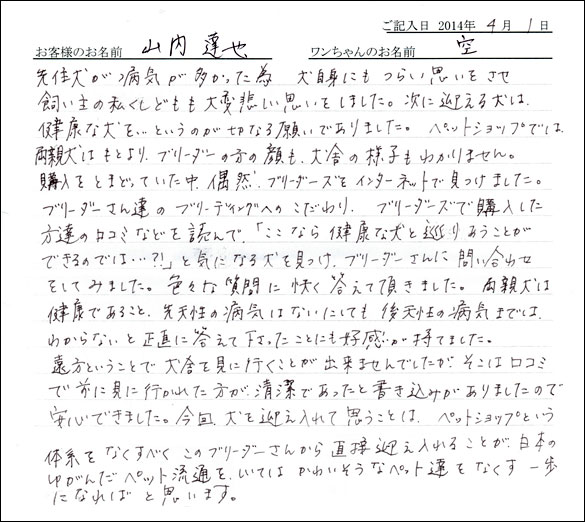 ご記入日 2014年 4月 1日
お客様のお名前 山内 達也 ワンちゃんのお名前 空
先住犬が病気が多かった為 犬自身にもつらい思いをさせ
飼い主の私くしどもも大変悲しい思いをしました。次に迎える犬は、
健康な犬を…というのが切なる願いでありました。ペットショップでは、
両親犬はもとより、ブリーダーの方の顔も、犬舎の様子もわかりません。
購入をとまどっていた中、偶然、ブリーダーズをインターネットで見つけました。
ブリーダーさん達のブリーディングへのこだわり、ブリーダーズで購入した
方達の口コミなどを読んで、「ここなら健康な犬と巡りあうことが
できるのでは…?!」と気になる犬を見つけ、ブリーダーさんに問い合わせ
をしてみました。色々な質問に快く答えて頂きました。両親犬は
健康であること、先天性の病気はないにしても後天性の病気までは、
わからないと正直に答えて下さったことにも好感が持てました。
遠方ということで犬舎を見に行くことが出来ませんでしたが、そこは口コミ
で前に見に行かれた方が、清潔であったと書き込みがありましたので
安心できました。今回、犬を迎え入れて思うことは、ペットショップという
体系をなくすべく このブリーダーさんから直接迎え入れることが、日本の
ゆがんだペット流通を、いては かわいそうなペット達をなくす一歩
になればと思います。